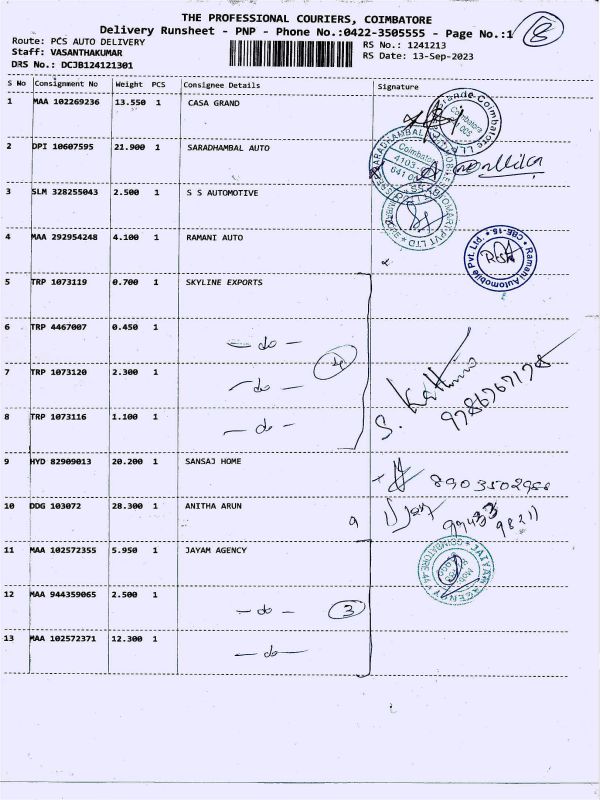 THE PROFESSIONAL COURIERS, COIMBATORE
Delivery Runsheet - PNP - Phone No.:0422-3505555 - Page No.:1 8
Route: PCS AUTO DELIVERY
Staff: VASANTHAKUMAR
DRS No.: DCJB124121301
RS No.: 1241213
RS Date: 13-Sep-2023
S No Consignment No Weight PCS Consignee Details Signature
1 MAA 102269236 13.550 1 CASA GRAND
2 DPI 10607595 21.900 1 SARADHAMBAL AUTO
3 SLM 328255043 2.500 1 S S AUTOMOTIVE
4 MAA 292954248 4.100 1 RAMANI AUTO
Ramani Automobile Pvt. Ltd. * CBE-18 *
5 TRP 1073119 0.700 1 SKYLINE EXPORTS
6 TRP 4467007 0.450 1 - do -
4
7 TRP 1073120 2.300 1 - do -
8 TRP 1073116 1.100 1 - do -
9786767178
9 HYD 82909013 20.200 1 SANSAJ HOME
8903502988
10 DDG 103072 28.300 1 ANITHA ARUN
99433 98211
11 MAA 102572355 5.950 1 JAYAM AGENCY
12 MAA 944359065 2.500 1 - do - 3
13 MAA 102572371 12.300 1 - do -